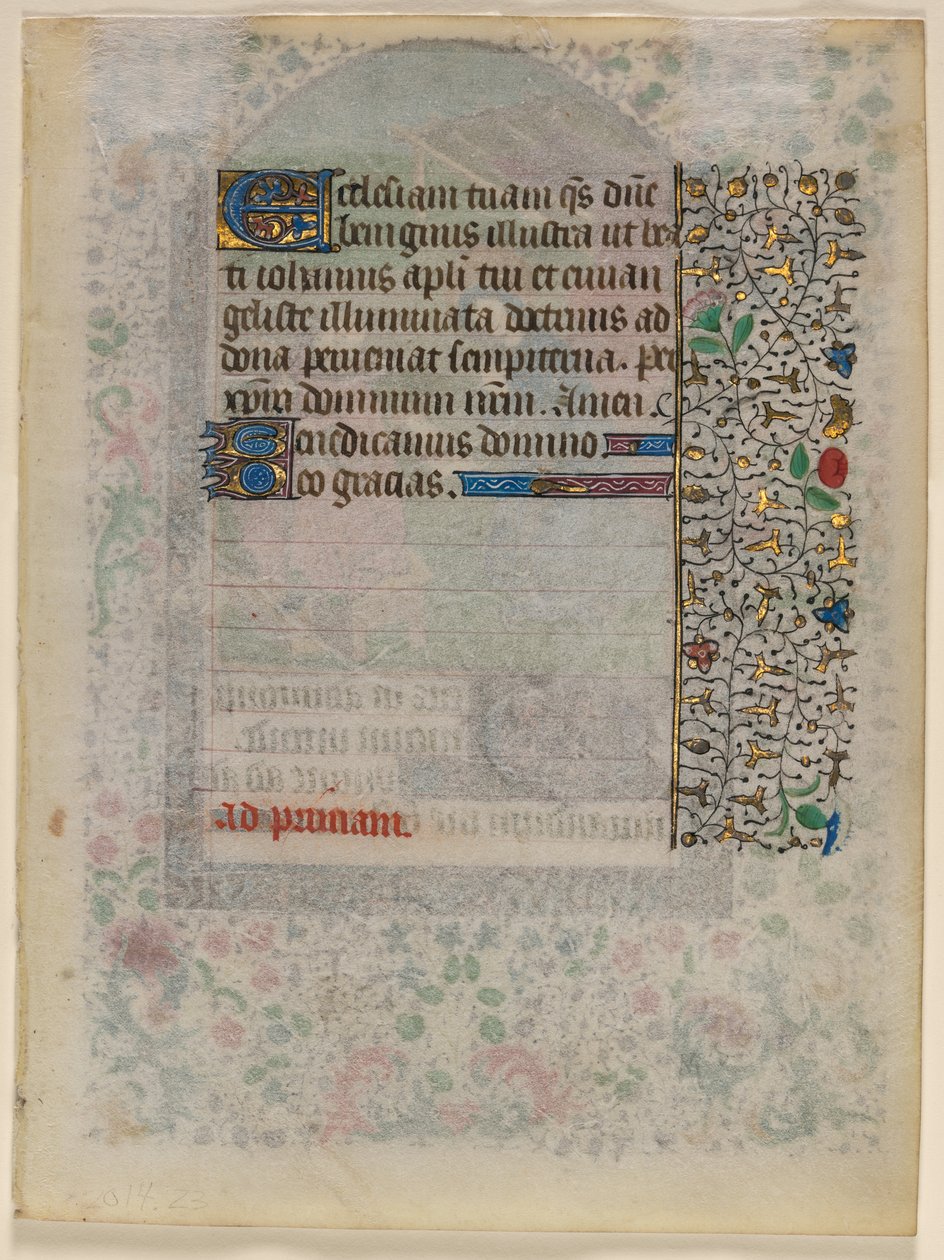 Ecclesiam tuam qs dne
benignus illustra ut bea
ti iohannis apli tui et euuan
geliste illuminata doctrinis ad
dona perueniat sempiterna. Per
xpm dominum nrm. Amen.
Benedicamus domino
Deo gracias.
Ad primam.
014.23